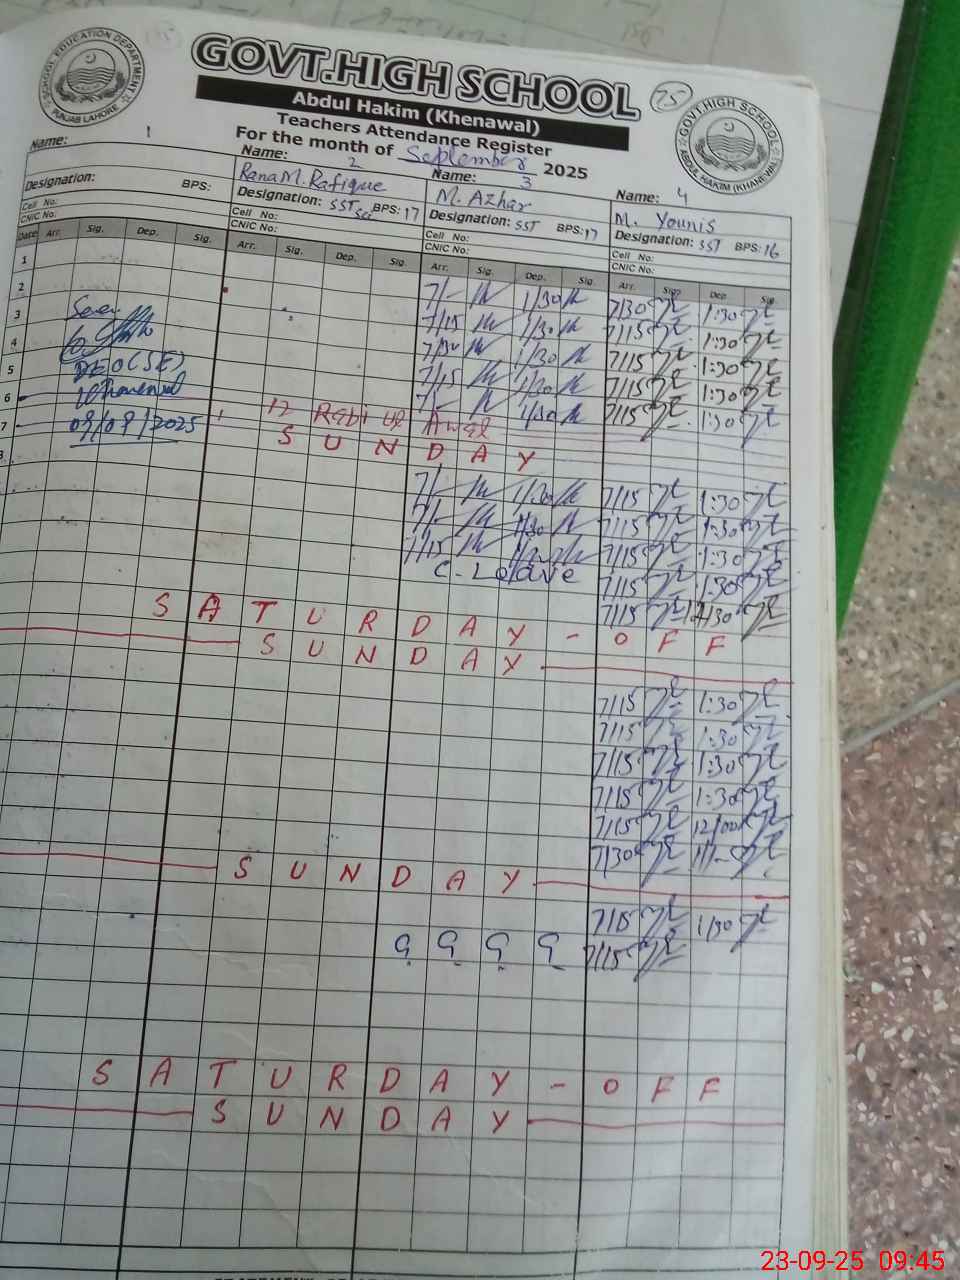 SCHOOL EDUCATION DEPARTMENT
PUNJAB LAHORE
GOVT.HIGH SCHOOL
75
GOVT.HIGH SCHOOL
ABDUL HAKIM (KHANEWAL)
Abdul Hakim (Khenawal)
Teachers Attendance Register
For the month of September 2025
Name: 1
Designation: BPS:
Cell No:
CNIC No:
Name: 2
Rana M. Rafique
Designation: SST Sci BPS: 17
Cell No:
CNIC No:
Name: 3
M. Azhar
Designation: SST BPS: 17
Cell No:
CNIC No:
Name: 4
M. Younis
Designation: SST BPS: 16
Cell No:
CNIC No:
Date Arr. Sig. Dep. Sig. Arr. Sig. Dep. Sig. Arr. Sig. Dep. Sig. Arr. Sig. Dep. Sig.
1 7/- 1/30 7/30 1:30
2 7/15 1/30 7/15 1:30
3 7/30 1/30 7/15 1:30
4 7/15 1/30 7/15 1:30
5 7/- 1/30 7/15 1:30
DEO (SE)
6 12 Rabi ul Awal
7 SUNDAY
09/09/2025
8 7/- 1/30 7/15 1:30
7/- 1/30 7/15 1:30
7/15 7/15 1:30
C-Leave 7/15 1:30
7/15
SATURDAY - OFF
SUNDAY
7/15 1:30
7/15 1:30
7/15 1:30
7/15 1:30
7/15 12/00
7/30 11/-
SUNDAY
7/15 1/30
7/15
SATURDAY - OFF
SUNDAY
23-09-25 09:45